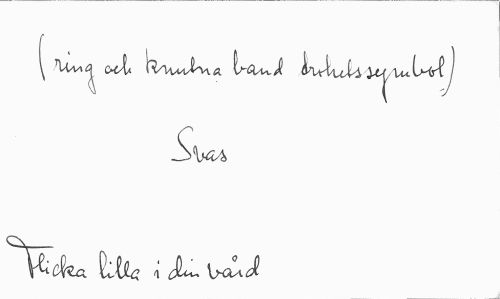 (ring och knutna band trohetssymbol)
Svas
Flicka lilla i din vård